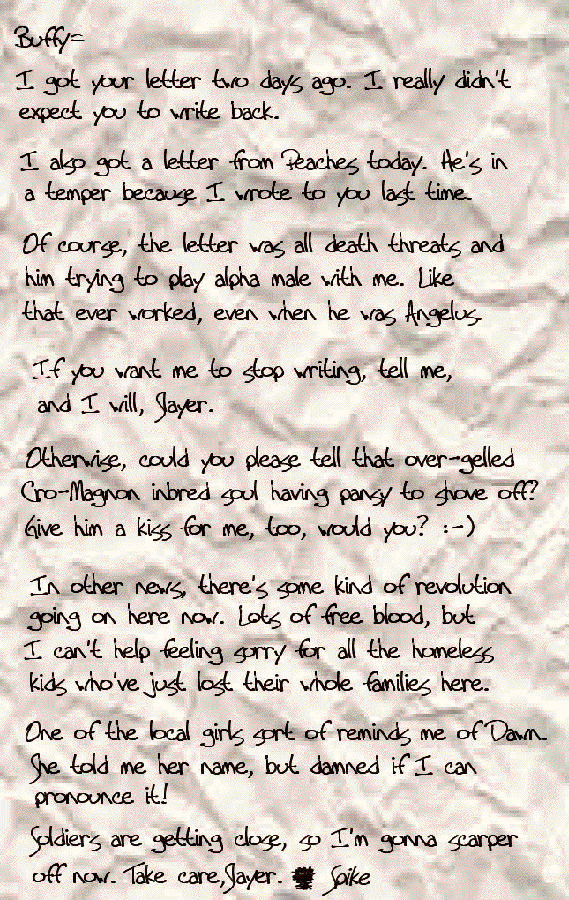 Buffy-
I got your letter two days ago. I really didn't
expect you to write back.
I also got a letter from Peaches today. He's in
a temper because I wrote to you last time.
Of course, the letter was all death threats and
him trying to play alpha male with me. Like
that ever worked, even when he was Angelus.
If you want me to stop writing, tell me,
and I will, Slayer.
Otherwise, could you please tell that over-gelled
Cro-Magnon inbred soul having pansy to shove off?
Give him a kiss for me, too, would you? :-)
In other news, there's some kind of revolution
going on here now. Lots of free blood, but
I can't help feeling sorry for all the homeless
kids who've just lost their whole families here.
One of the local girls sort of reminds me of Dawn.
She told me her name, but damned if I can
pronounce it!
Soldiers are getting close, so I'm gonna scarper
off now. Take care, Slayer. Spike